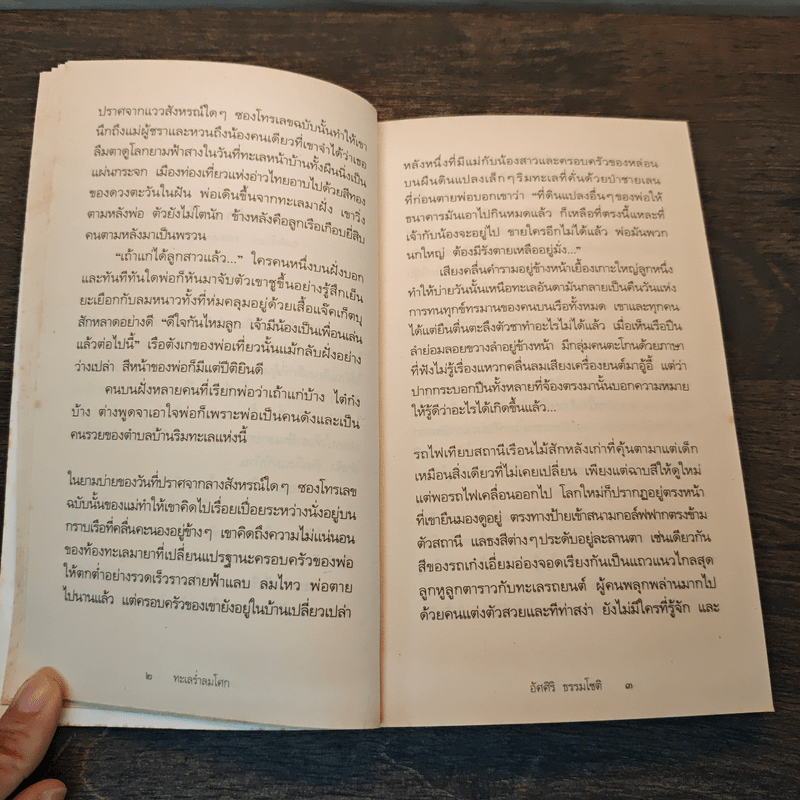 ปราศจากแววสังหรณ์ใดๆ ซองโทรเลขฉบับนั้นทำให้เขา
นึกถึงแม่ผู้ชราและหวนถึงน้องคนเดียวที่เขาจำได้ว่าเธอ
ลืมตาดูโลกยามฟ้าสางในวันที่ทะเลหน้าบ้านทั้งผืนนิ่งเป็น
แผ่นกระจก เมืองท่องเที่ยวแห่งอ่าวไทยอาบไปด้วยสีทอง
ของดวงตะวันในฝัน พ่อเดินขึ้นจากทะเลมาฝั่ง เขาวิ่ง
ตามหลังพ่อ ตัวยังไม่โตนัก ข้างหลังคือลูกเรือเกือบยี่สิบ
คนตามหลังมาเป็นพรวน
“เถ้าแก่ได้ลูกสาวแล้ว...” ใครคนหนึ่งบนฝั่งบอก
และทันทีทันใดพ่อก็หันมาจับตัวเขาชูขึ้นอย่างรู้สึกเย็น
ยะเยือกกับลมหนาวทั้งที่ห่มคลุมอยู่ด้วยเสื้อแจ็คเก็ตบุ
สักหลาดอย่างดี “ดีใจกันไหมลูก เจ้ามีน้องเป็นเพื่อนเล่น
แล้วต่อไปนี้” เรือตังเกของพ่อเที่ยวนั้นแม้กลับฝั่งอย่าง
ว่างเปล่า สีหน้าของพ่อก็มีแต่ปีติยินดี
คนบนฝั่งหลายคนที่เรียกพ่อว่าเถ้าแก่บ้าง ไต๋ก๋ง
บ้าง ต่างพูดจาเอาใจพ่อก็เพราะพ่อเป็นคนดังและเป็น
คนรวยของตำบลบ้านริมทะเลแห่งนี้
ในยามบ่ายของวันที่ปราศจากลางสังหรณ์ใดๆ ซองโทรเลข
ฉบับนั้นของแม่ทำให้เขาคิดไปเรื่อยเปื่อยระหว่างนั่งอยู่บน
กราบเรือที่คลื่นคะนองอยู่ข้างๆ เขาคิดถึงความไม่แน่นอน
ของท้องทะเลมายาที่เปลี่ยนแปรฐานะครอบครัวของพ่อ
ให้ตกต่ำอย่างรวดเร็วราวสายฟ้าแลบ ลมไหว พ่อตาย
ไปนานแล้ว แต่ครอบครัวของเขายังอยู่ในบ้านเปลี่ยวเปล่า
๒ ทะเลร่ำลมโศก
หลังหนึ่งที่มีแม่กับน้องสาวและครอบครัวของหล่อน
บนผืนดินแปลงเล็กๆริมทะเลที่คั่นด้วยป่าชายเลน
ที่ก่อนตายพ่อบอกเขาว่า “ที่ดินแปลงอื่นๆของพ่อให้
ธนาคารมันเอาไปกินหมดแล้ว ก็เหลือที่ตรงนี้แหละที่
เจ้ากับน้องจะอยู่ไป ขายใครอีกไม่ได้แล้ว พ่อมันพวก
นกใหญ่ ต้องมีรังตายเหลืออยู่มั่ง...”
เสียงคลื่นคำรามอยู่ข้างหน้าเยื้องเกาะใหญ่ลูกหนึ่ง
ทำให้บ่ายวันนั้นเหนือทะเลอันดามันกลายเป็นคืนวันแห่ง
การทนทุกข์ทรมานของคนบนเรือทั้งหมด เขาและทุกคน
ได้แต่ยืนตื่นตะลึงตัวชาทำอะไรไม่ได้แล้ว เมื่อเห็นเรือปืน
ลำย่อมลอยขวางลำอยู่ข้างหน้า มีกลุ่มคนตะโกนด้วยภาษา
ที่ฟังไม่รู้เรื่องแหวกคลื่นลมเสียงเครื่องยนต์มาอู้อี้ แต่ว่า
ปากกระบอกปืนทั้งหลายที่จ้องตรงมานั้นบอกความหมาย
ให้รู้ดีว่าอะไรได้เกิดขึ้นแล้ว...
รถไฟเทียบสถานีเรือนไม้สักหลังเก่าที่คุ้นตามาแต่เด็ก
เหมือนสิ่งเดียวที่ไม่เคยเปลี่ยน เพียงแต่ฉาบสีให้ดูใหม่
แต่พอรถไฟเคลื่อนออกไป โลกใหม่ก็ปรากฏอยู่ตรงหน้า
ที่เขายืนมองดูอยู่ ตรงทางป้ายเข้าสนามกอล์ฟฟากตรงข้าม
ตัวสถานี แลธงสีต่างๆประดับอยู่ละลานตา เช่นเดียวกัน
สีของรถเก๋งเอี่ยมอ่องจอดเรียงกันเป็นแถวแนวไกลสุด
ลูกหูลูกตาราวกับทะเลรถยนต์ ผู้คนพลุกพล่านมากไป
ด้วยคนแต่งตัวสวยและทีท่าสง่า ยังไม่มีใครที่รู้จัก และ
อัศศิริ ธรรมโชติ ๓